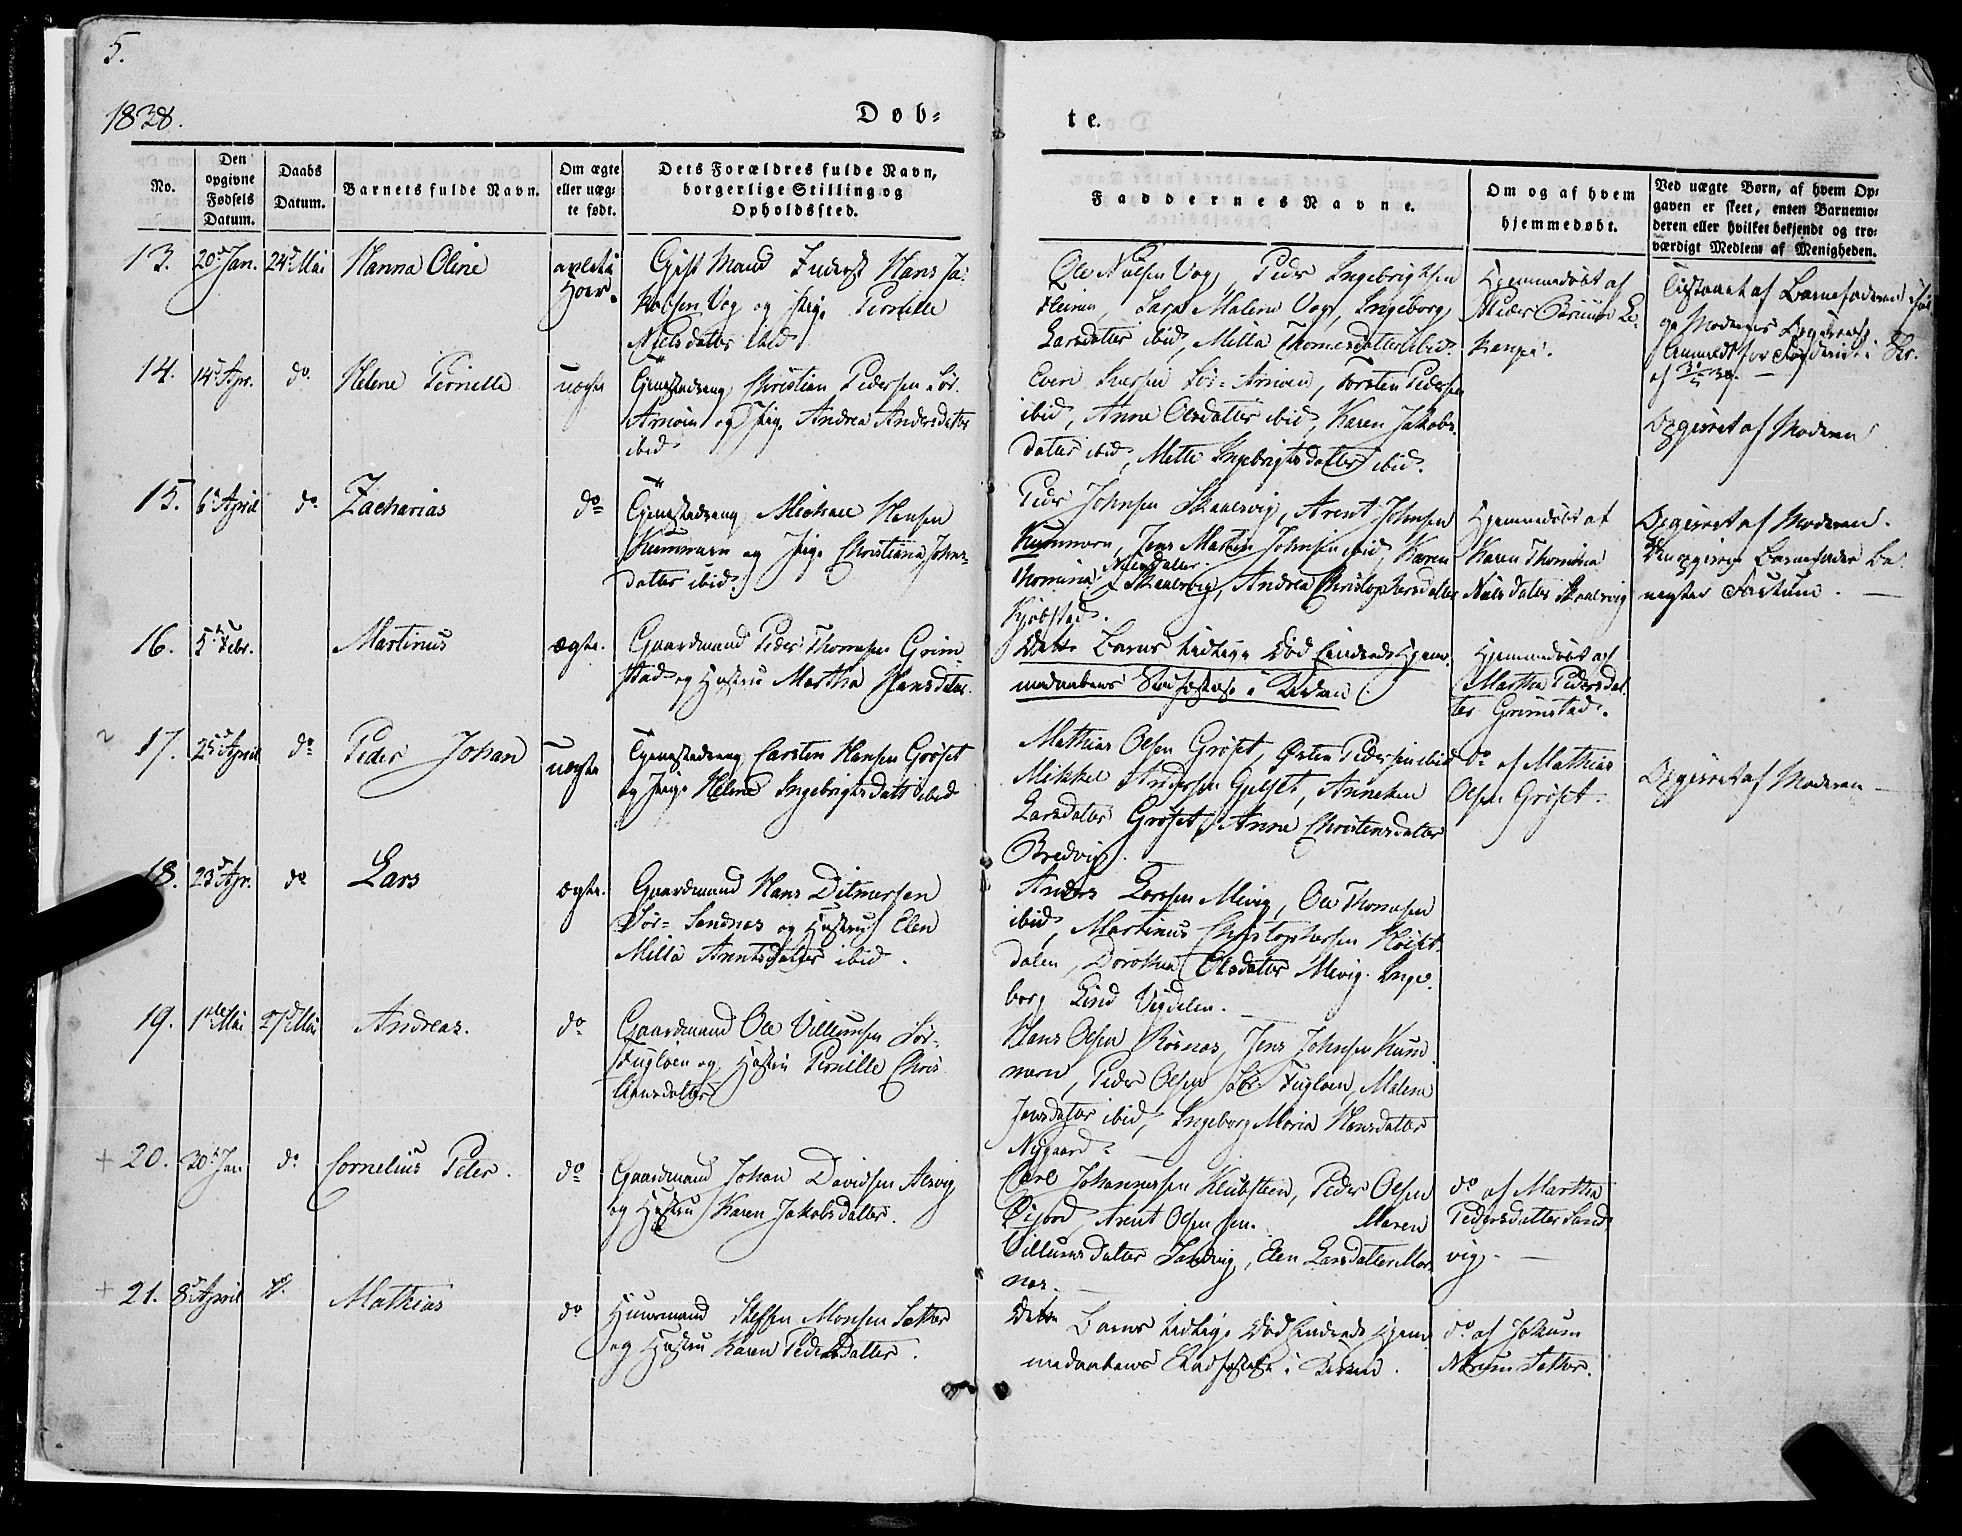 5.
1838.
Døb-
te.
No.
Den opgivne Fødsels Datum.
Daabs Datum.
Barnets fulde Navn.
Om ægte eller uæg-
te født.
Dets Forældres fulde Navn,
borgerlige Stilling og
Opholdssted.
Faddernes Navne.
Om og af hvem
hjemmedøbt.
Ved uægte Børn, af hvem Op-
gaven er skeet, enten Barnemo-
deren eller hvilket bekjendt og tro-
værdigt Medlem af Menigheden.
13.
20d Jan.
24d Mai
Hanna Oline
avlet i
Hoer.
Gift Mand Inderst Hans Ja-
kobsen Vog og Pige Pernille
Nielsdatter ibid
Ole Nielsen Vog, Peder Ingebrigtsen
Lars Malene Vog, Ingeborg
Larsdatter ibid, Milla Thomesdatter ibid.
Hjemmedøbt af
Peder Bruun
Tilstaaet af Barnefaderen
Moderens
14.
14d Apr.
do
Helene Pernille
uægte
Tjenestedreng Christian Pedersen Sør-
Arnøen og Pige Andrea Andersdatter
ibid
Even Iversen Sør-Arnøen, Torsten Pedersen
ibid, Anne Olsdatter ibid, Karen Jakobs-
datter ibid, Mette Ingebrigtsdatter ibid.
Opgivet af Moderen
15.
6d April
do
Zacharias
do
Tjenestedreng Michael Hansen
Kunmarn og Pige Christiana Johns-
datter ibid.
Peder Johnsen Skaalsvig, Arent Johnsen
Kunmarn, Jens Martin Johnsen ibid, Karen
Thomina Nielsdatter Skaalsvig, Andrea Christophersdatter
Kjøbstad.
Hjemmedøbt af
Karen Thomina
Nielsdatter Skaalsvig
Opgivet af Moderen.
Den opgivne Barnefader be-
negter Factum.
16.
5te Febr.
Martinus
ægte.
Gaardmand Peder Thomesen Grim-
stad og Hustru Martha Hansdatter
Dette Barns tidlige Død hindrede Hjem-
medaabens Stadfæstelse i Kirken.
Hjemmedøbt af
Martha Pedersdat-
ter Grimstad.
17.
25d April
do
Peder Johan
uægte
Tjenestedreng Carsten Hansen Grøset
og Pige Helene Ingebrigtsdatt ibid
Mathias Olsen Grøset, Østen Pedersen ibid
Mikkel Andersen Gylset, Anneken
Larsdatter Grøset, Anne Christensdatter
Bredvig.
do af Mathias
Olsen Grøset.
Opgivet af Moderen
18.
23d Apr.
do
Lars
ægte.
Gaardmand Hans Ditmersen
Sør-Sandnes og Hustru Elen
Milla Arntsdatter ibid.
Anders Larsen Mevig, Ole Thomesen
ibid, Martinus Christophersen Høiset-
dalen, Dorothea Olsdatter Mevig. Inge-
borg Lind Vigdalen.
19.
1ste Mai
27d Mai
Andreas.
do
Gaardmand Ole Villumsen Sør-
Fugløen og Hustru Pernille Chris-
tiansdatter
Hans Olsen Røsnæs, Jens Johnsen Kun-
marn, Peder Olsen Sør-Fugløen, Malene
Jensdatter ibid, Ingeborg Maria Hansdatter
Nygaard
20.
30d Jan
do
Cornelius Peter.
do
Gaardmand Johan Davidsen Alsvig
og Hustru Karen Jakobsdatter.
Carl Johannessen Klubsteen, Peder Olsen
Arent Olsen sen. Maren
Villumsdatter Sandvig, Elen Larsdatter Mor-
nes.
do af Martha
Pedersdatter Sand-
vig.
21.
8d April
do.
Mathias
do
Huusmand Steffen Monsen Sætter
og Hustru Karen Pedersdatter.
Dette Barns tidlige Død hindrede Hjem-
medaabens Stadfæstelse i Kirken.
do af Jokum